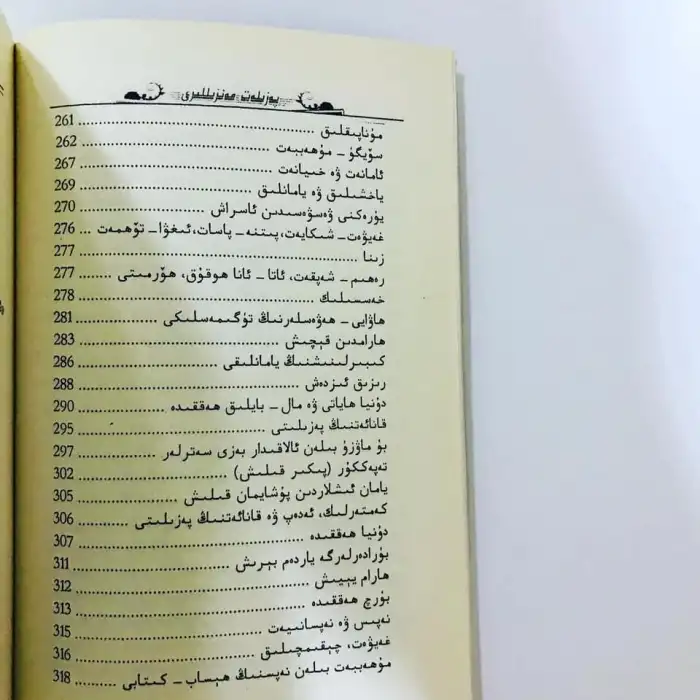 پەزىلەت مەنزىللىرى
مۇناپىقلىق ........ 261
سۆيگۈ - مۇھەببەت ........ 262
ئامانەت ۋە خىيانەت ........ 267
ياخشىلىق ۋە يامانلىق ........ 269
يۈرەكنى ۋەسۋەسىدىن ئاسراش ........ 270
غەيۋەت- شىكايەت، پىتنە- پاسات، ئىغۋا- تۆھمەت ... 276
زىنا ........ 277
رەھىم - شەپقەت، ئاتا - ئانا ھوقۇق، ھۆرمىتى ........ 277
خەسىسلىك ........ 278
ھاۋايى - ھەۋەسلەرنىڭ تۈگىمەسلىكى ........ 281
ھارامدىن قېچىش ........ 283
كىبىرلىنىشنىڭ يامانلىقى ........ 286
رىزىق ئىزدەش ........ 288
دۇنيا ھاياتى ۋە مال - بايلىق ھەققىدە ........ 290
قانائەتنىڭ پەزىلىتى ........ 295
بۇ ماۋزۇ بىلەن ئالاقىدار بەزى سەترلەر ........ 297
تەپەككۇر (پىكىر قىلىش) ........ 302
يامان ئىشلاردىن پۇشايمان قىلىش ........ 305
كەمتەرلىك، ئەدەپ ۋە قانائەتنىڭ پەزىلىتى ........ 306
دۇنيا ھەققىدە ........ 307
بۇرادەرلەرگە ياردەم بېرىش ........ 311
ھارام يېيىش ........ 312
بۇرچ ھەققىدە ........ 313
نەپىس ۋە نەپسانىيەت ........ 315
غەيۋەت، چېقىمچىلىق ........ 316
مۇھەببەت بىلەن نەپسنىڭ ھېساب - كىتابى ........ 318